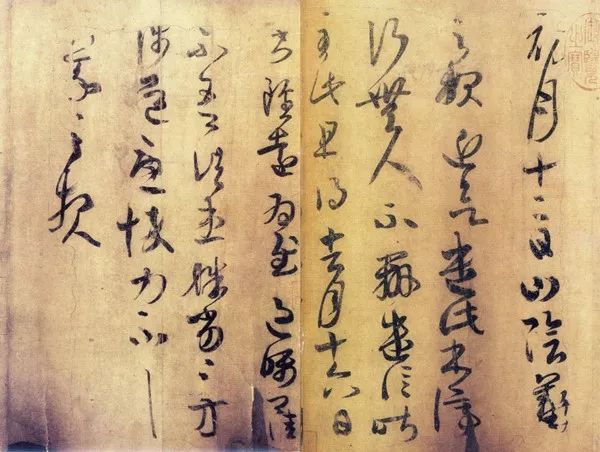 初月十二日山陰羲
之報近欲遣此書停
行無人不辦遣信昨
至此且得去月十六日
書雖遠為慰過囑卿佳
不吾諸患殊劣殊劣方
涉道憂悴力不一一
羲之報